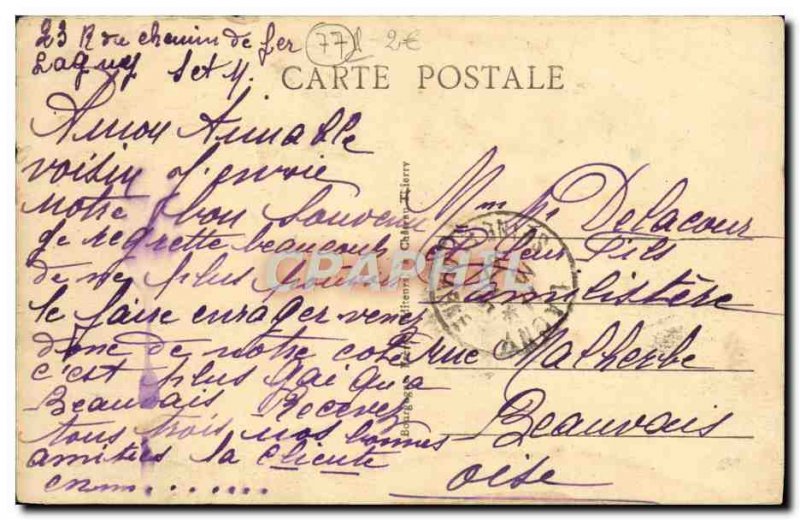 23 R du chemin de fer
Lagny S et M.
77 - 2€
CARTE POSTALE
A mon Aimable
voisin j'envoie
notre bon souvenir
je regrette beaucoup
de ne plus pouvoir
le faire enrager venez
donc de notre coté
c'est plus gai qu'a
Beauvais Recevez
tous trois nos bonnes
amities la Chente
cnm........
Bourgogne Éditeurs Château-Thierry
Mme Delacour
et leur Fils
rue Malherbe
Beauvais
Oise
CPAPHIL